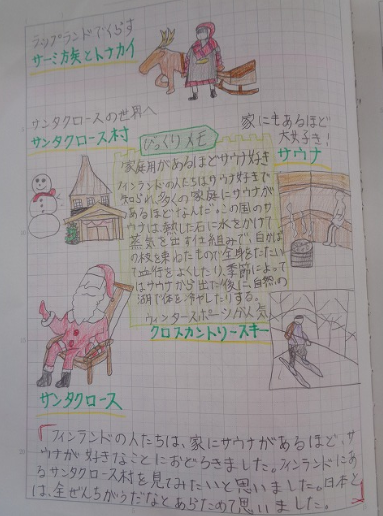 ラップランドでくらす
サーミ族とトナカイ
サンタクロースの世界へ
サンタクロース村
家にもあるほど
大好き！
サウナ
びっくりメモ
家庭用があるほどサウナ好き
フィンランドの人たちはサウナ好きで
知られ、多くの家庭にサウナが
あるほどなんだ。この国のサ
ウナは、熱した石に水をかけて
蒸気を出す仕組みで、白かば
の枝を束ねたもので全身をたたい
て血行をよくしたり、季節によって
はサウナから出た後に、自然の
湖で体を冷やしたりする。
ウィンタースポーツが人気
クロスカントリースキー
サンタクロース
フィンランドの人たちは、家にサウナがあるほど、サ
ウナが好きなことにおどろきました。フィンランドにあ
るサンタクロース村を見てみたいと思いました。日本と
は、全ぜんちがうだなとあらためて思いました。